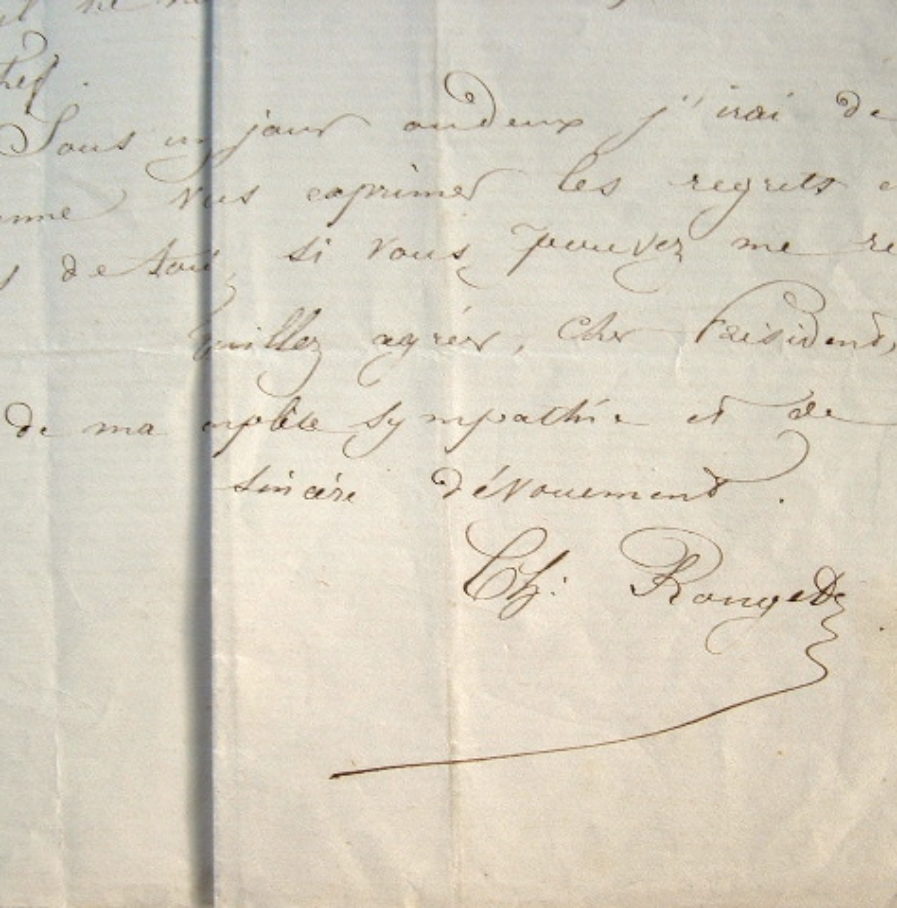 hef.
Sous un jour ou deux j'irai de
enne vous exprimer les regrets
de tous, si vous pouvez me re
Veuillez agréer, Cher Président,
de ma complète sympathie et de
sincère dévouement.
Ch: Rouget